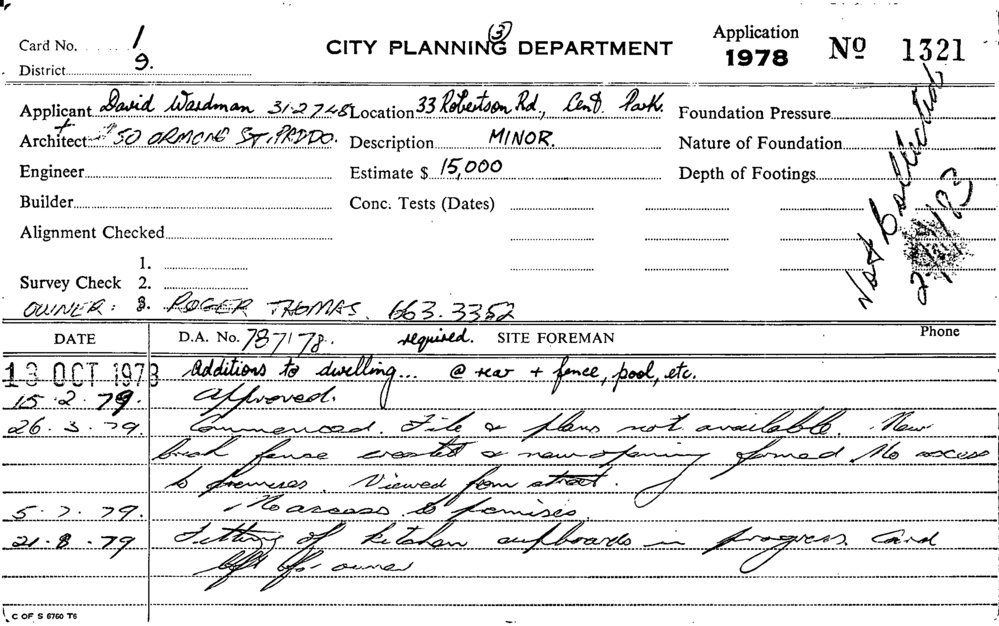 Card No. 1
CITY PLANNING DEPARTMENT
(3)
Application
1978
No 1321
District 9.
Applicant David Wardman 31-2748
Location 33 Robertson Rd, Cent. Park.
Foundation Pressure
+
Architect 50 ORMOND ST. PADDO.
Description MINOR.
Nature of Foundation
Engineer
Estimate $ 15,000
Depth of Footings
Builder
Conc. Tests (Dates)
Not Collected
83
Alignment Checked
1.
Survey Check 2.
OWNER: 3. ROGER THOMAS. 663.3352
DATE
D.A. No. 787/78. required. SITE FOREMAN
Phone
13 OCT 1978 Additions to dwelling... @ rear + fence, pool, etc.
15.2.79. Approved.
26.3.79. Commenced. File & plans not available. New
brick fence erected & new opening formed No access
to premises. Viewed from street.
5.7.79. No access to premises.
21.8.79 Fitting of kitchen cupboards in progress. Card
left for owner
C OF S 6760 T6